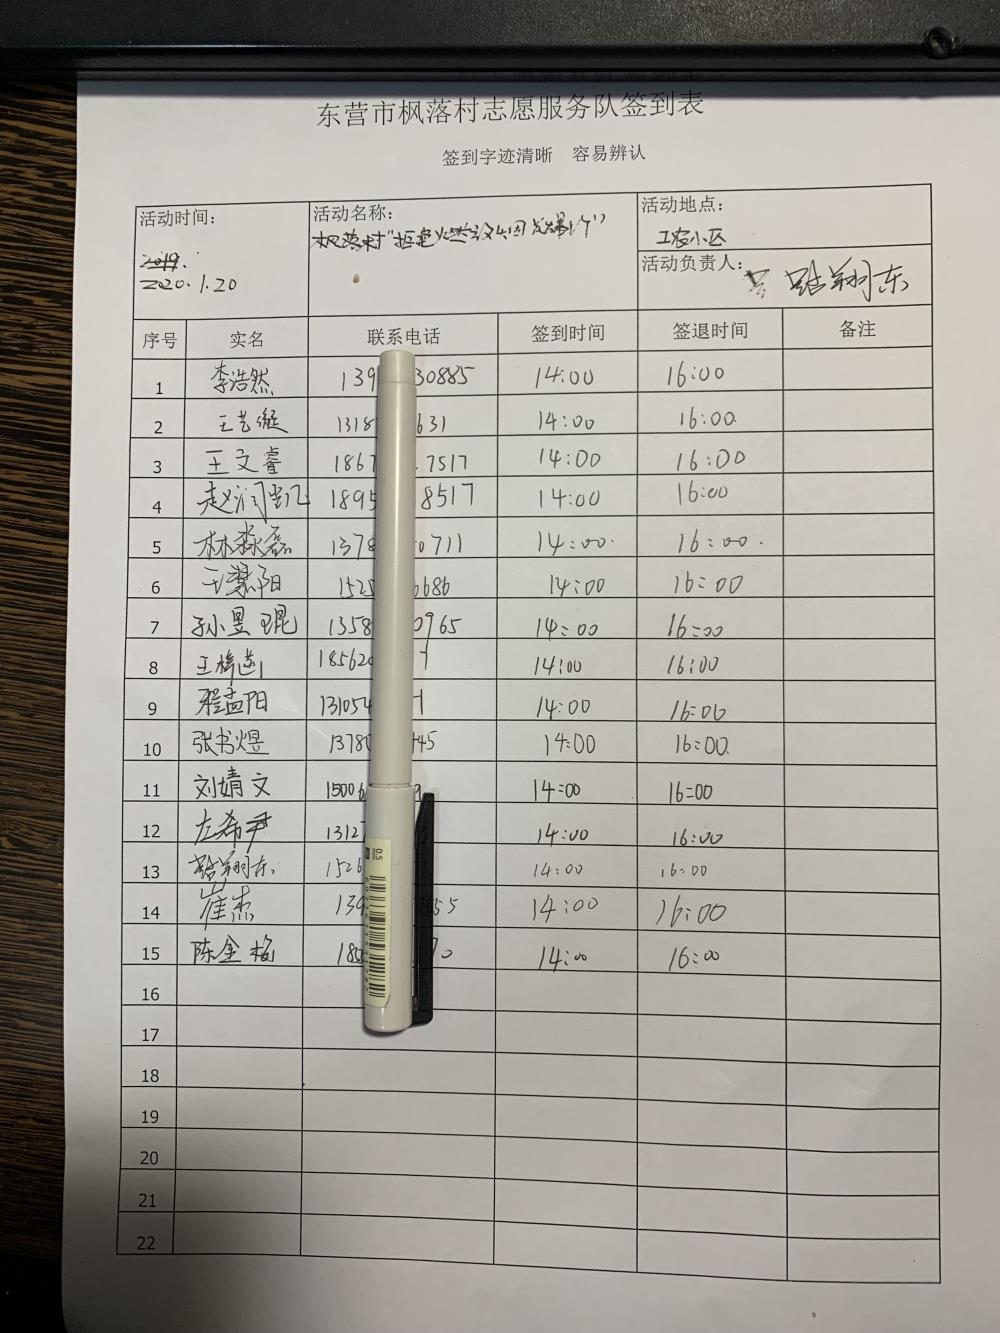 东营市枫落村志愿服务队签到表
签到字迹清晰 容易辨认
活动时间: 活动名称: 活动地点:
枫落村"拒
工农小区
2019.
2020.1.20
活动负责人:
翔东
序号 实名 联系电话 签到时间 签退时间 备注
1 李浩然 139 30885 14:00 16:00
2 王艺 1318 631 14:00 16:00
3 王文睿 1867 7517 14:00 16:00
4 赵润凯 1895 8517 14:00 16:00
5 林淼磊 1378 0711 14:00. 16:00.
6 王 阳 1525 6686 14:00 16:00
7 孙昱琨 1358 0965 14:00 16:00
8 王梓 185620 14:00 16:00
9 程孟阳 131054 14:00 16:00
10 张书煜 1378 45 14:00 16:00
11 刘婧文 15006 9 14:00 16:00
12 左希尹 1312 14:00 16:00
13 翔东 1526 14:00 16:00
14 崔杰 139 55 14:00 16:00
15 陈金梅 185 70 14:00 16:00
16
17
18
19
20
21
22
0.5